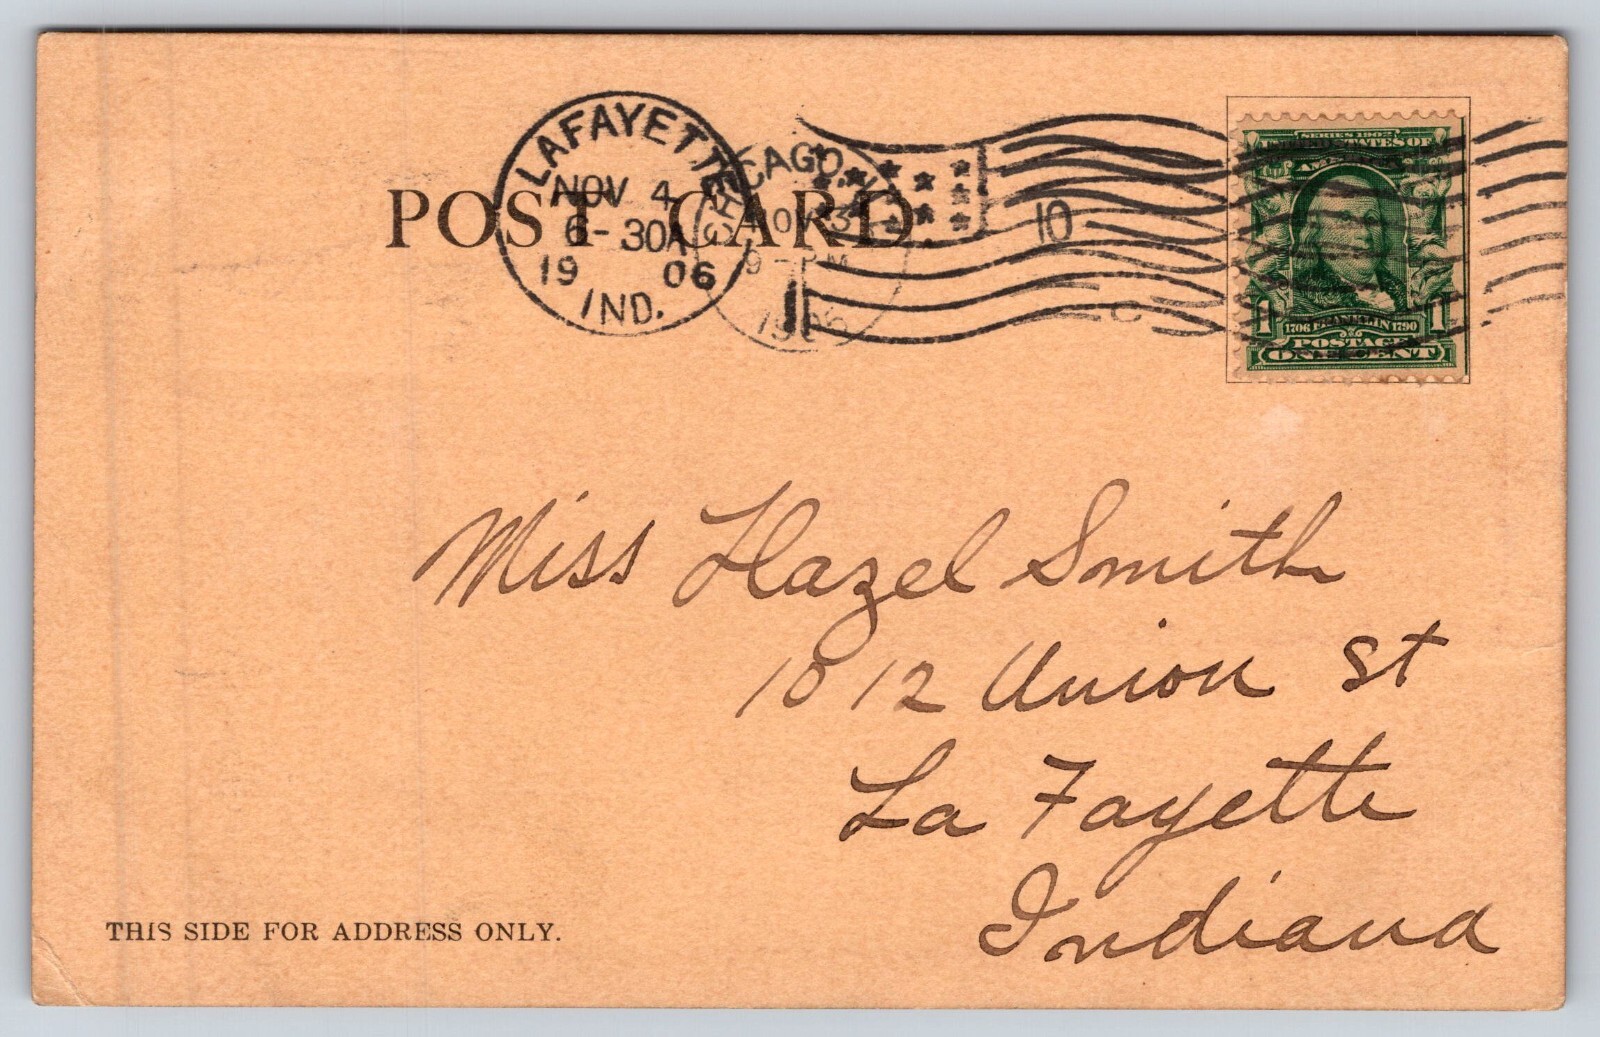 LAFAYETTE
NOV 4
6-30A
19 06
IND.
CHICAGO, ILL.
NOV 3
9-PM
1906
10
C
POST CARD
SERIES 1902
UNITED STATES OF
AMERICA
1706 FRANKLIN 1790
1 1
POSTAGE
ONE CENT
Miss Hazel Smith
1012 Union St
La Fayette
Indiana
THIS SIDE FOR ADDRESS ONLY.